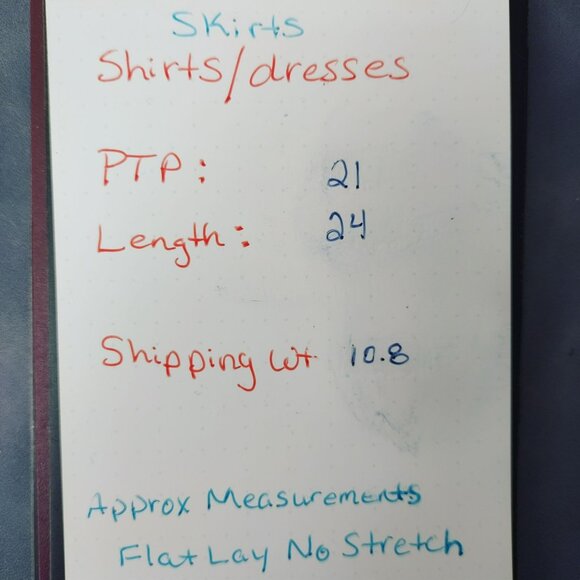 Skirts
Shirts/dresses
PTP: 21
Length: 24
Shipping wt 10.8
Approx Measurements
Flat Lay No Stretch